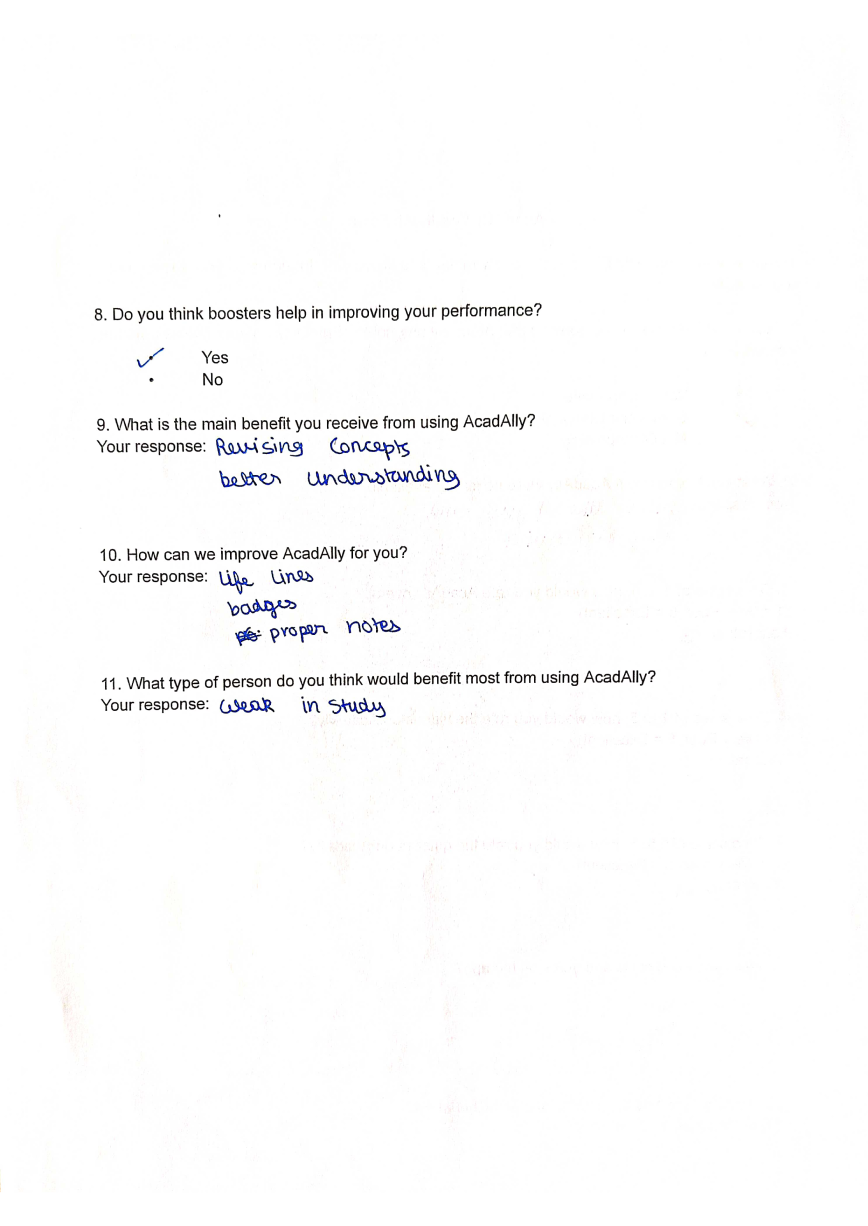 8. Do you think boosters help in improving your performance?
Yes
• No
9. What is the main benefit you receive from using AcadAlly?
Your response: Revising Concepts
better understanding
10. How can we improve AcadAlly for you?
Your response: life lines
badges
proper notes
11. What type of person do you think would benefit most from using AcadAlly?
Your response: weak in study